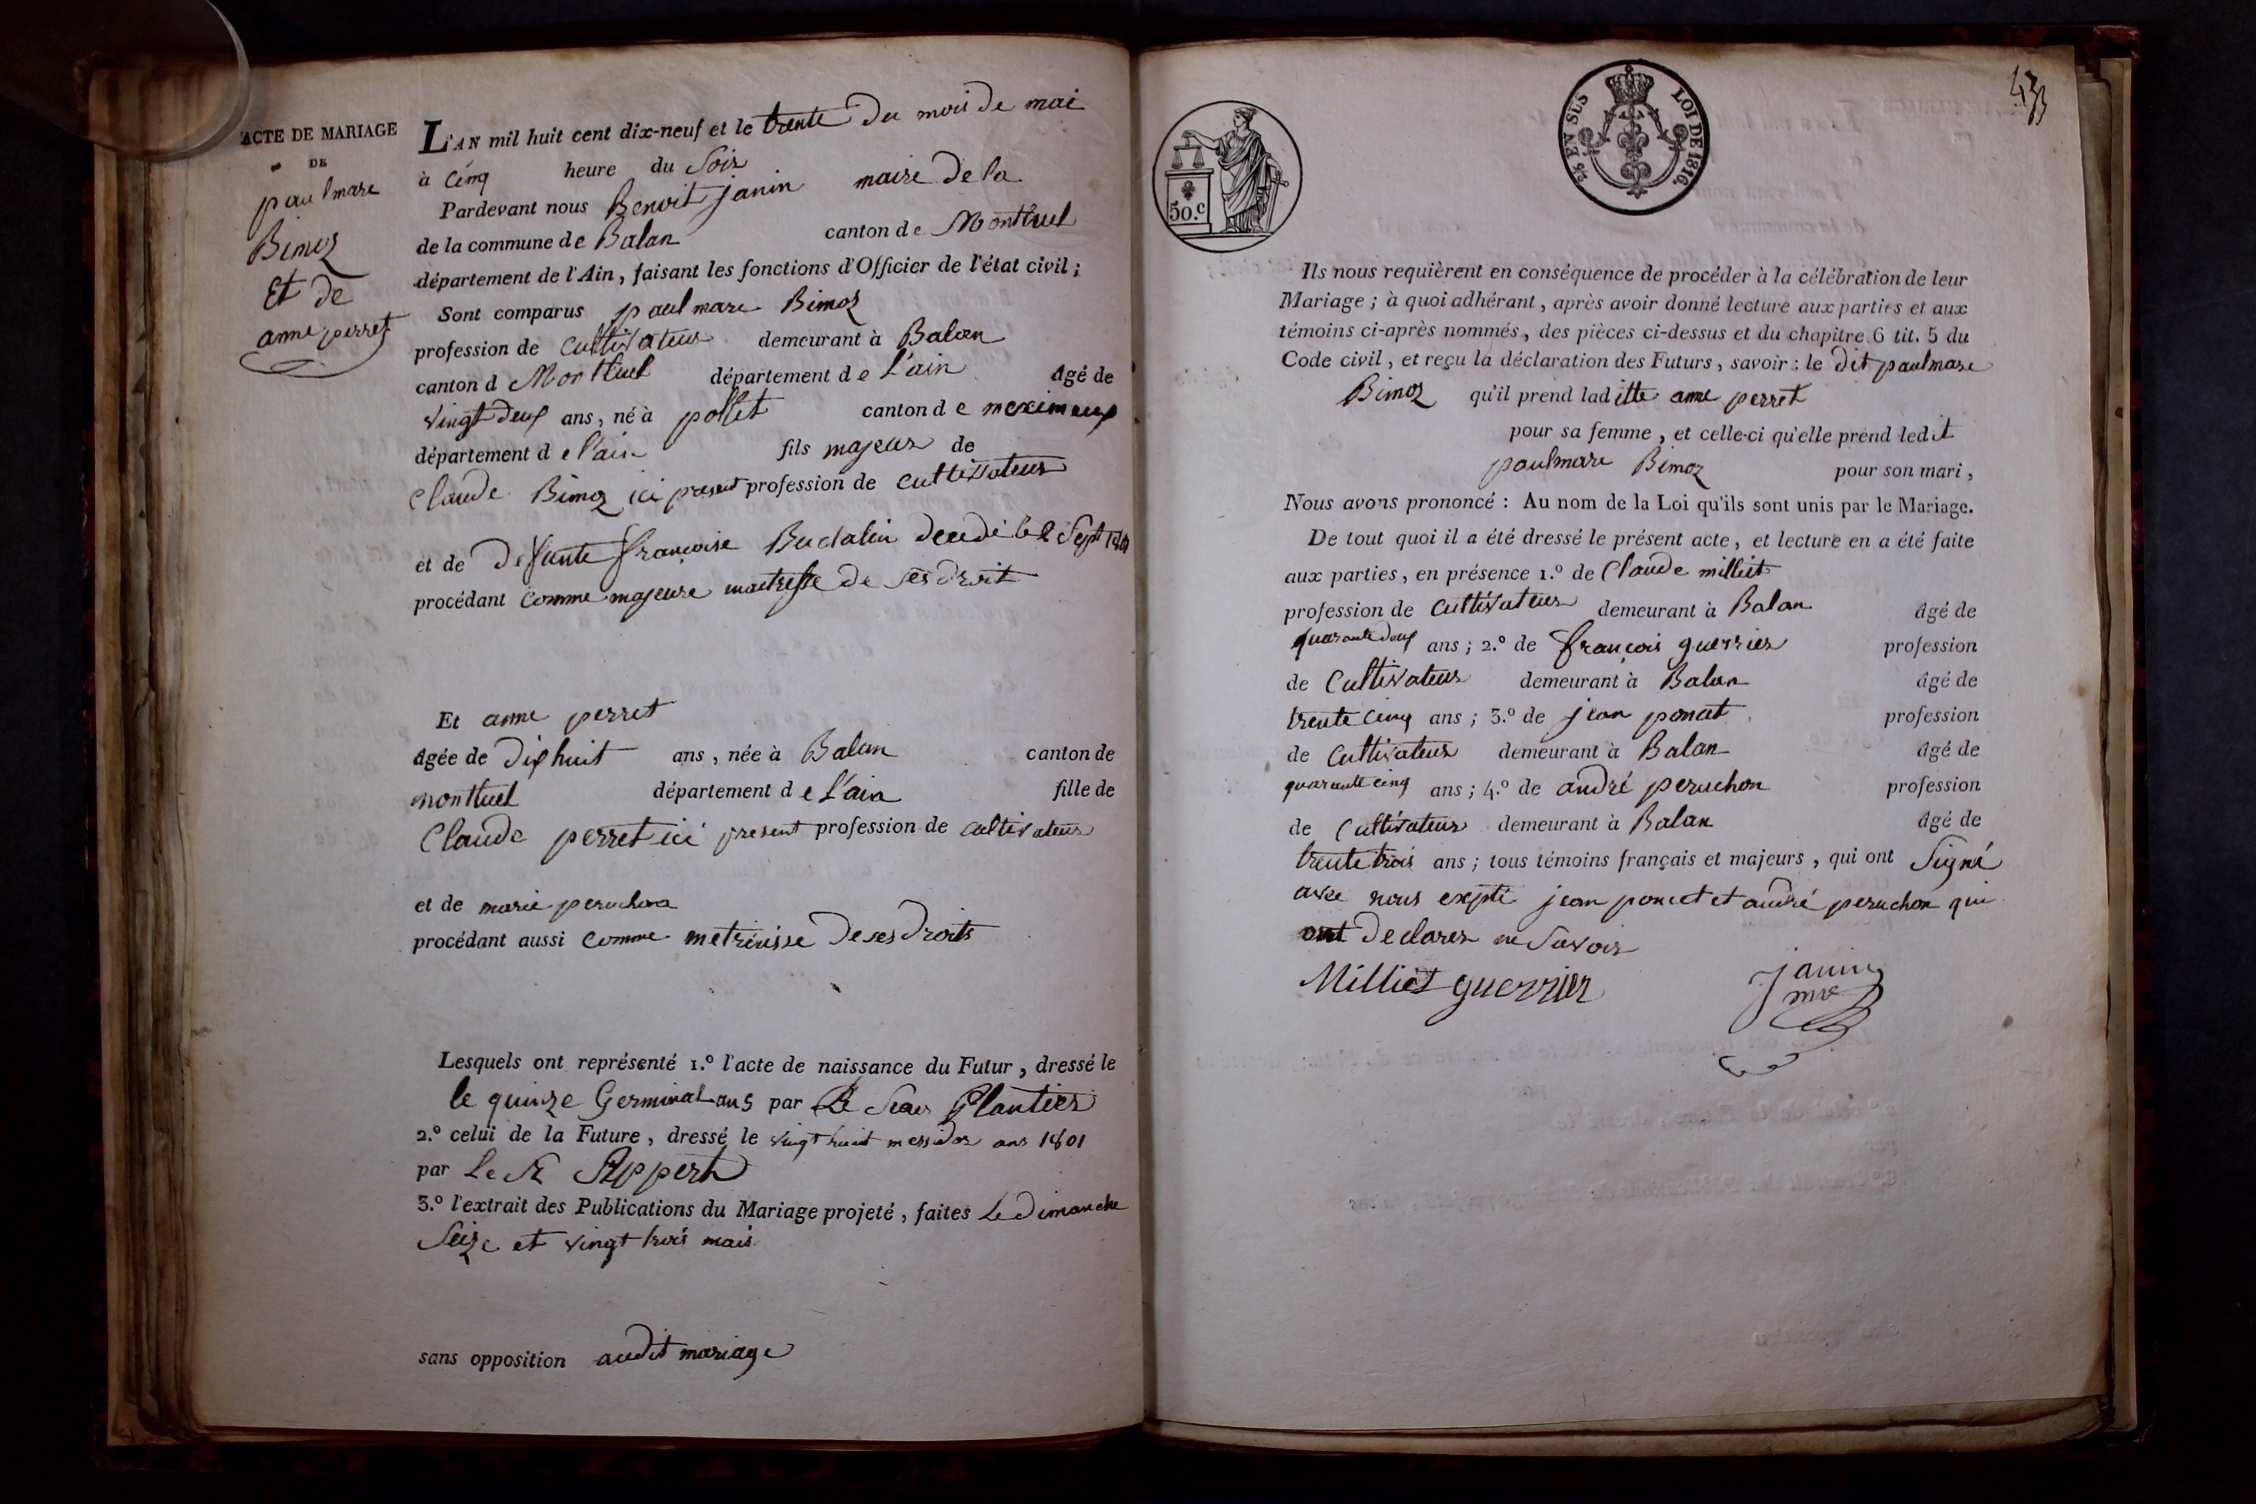 ACTE DE MARIAGE
DE
paul marc
Bimoz
Et de
anne perret
L'AN mil huit cent dix-neuf et le trente du mois de mai
à cinq heure du soir
Pardevant nous Benoit janin maire de la
de la commune de Balan canton de Montluel
département de l'Ain, faisant les fonctions d'Officier de l'état civil;
Sont comparus paul marc Bimoz
profession de cultivateur demeurant à Balan
canton d Montluel département de l'ain âgé de
vingt deux ans, né à pollet canton de meximeux
département de l'ain fils majeur de
Claude Bimoz ici present profession de cultivateur
et de defunte françoise decedé le 2 Sept
procédant comme majeure maitresse de ses droit
Et anne perret
âgée de dix huit ans, née à Balan canton de
montluel département de l'ain fille de
Claude perret ici present profession de cultivateur
et de marie peruchon
procédant aussi comme metréisse de ses droits
Lesquels ont représenté 1.º l'acte de naissance du Futur, dressé le
le quinze Germinal an 5 par Le Plantier
2.º celui de la Future, dressé le vingt huit messidor ans 1801
par Le Sr Appert
3.º l'extrait des Publications du Mariage projeté, faites Le dimanche
Seize et vingt trois mais
sans opposition audit mariage
433
50.c
25 EN SUS
LOI DE 1816.
Ils nous requièrent en conséquence de procéder à la célébration de leur
Mariage; à quoi adhérant, après avoir donné lecture aux parties et aux
témoins ci-après nommés, des pièces ci-dessus et du chapitre 6 tit. 5 du
Code civil, et reçu la déclaration des Futurs, savoir: le dit paul marc
Bimoz qu'il prend laditte anne perret
pour sa femme, et celle-ci qu'elle prend ledit
paul marc Bimoz pour son mari,
Nous avons prononcé: Au nom de la Loi qu'ils sont unis par le Mariage.
De tout quoi il a été dressé le présent acte, et lecture en a été faite
aux parties, en présence 1.º de Claude milliet
profession de cultivateur demeurant à Balan âgé de
quarante deux ans; 2.º de françois guerrier profession
de Cultivateur demeurant à Balan âgé de
trente cinq ans; 3.º de jean poncet profession
de Cultivateur demeurant à Balan âgé de
quarante cinq ans; 4.º de andré peruchon profession
de Cultivateur demeurant à Balan âgé de
trente trois ans; tous témoins français et majeurs, qui ont Signé
avec nous exepté jean poncet et andré peruchon qui
ont declarer ne Savoir
Milliet guerrier
janin
mre